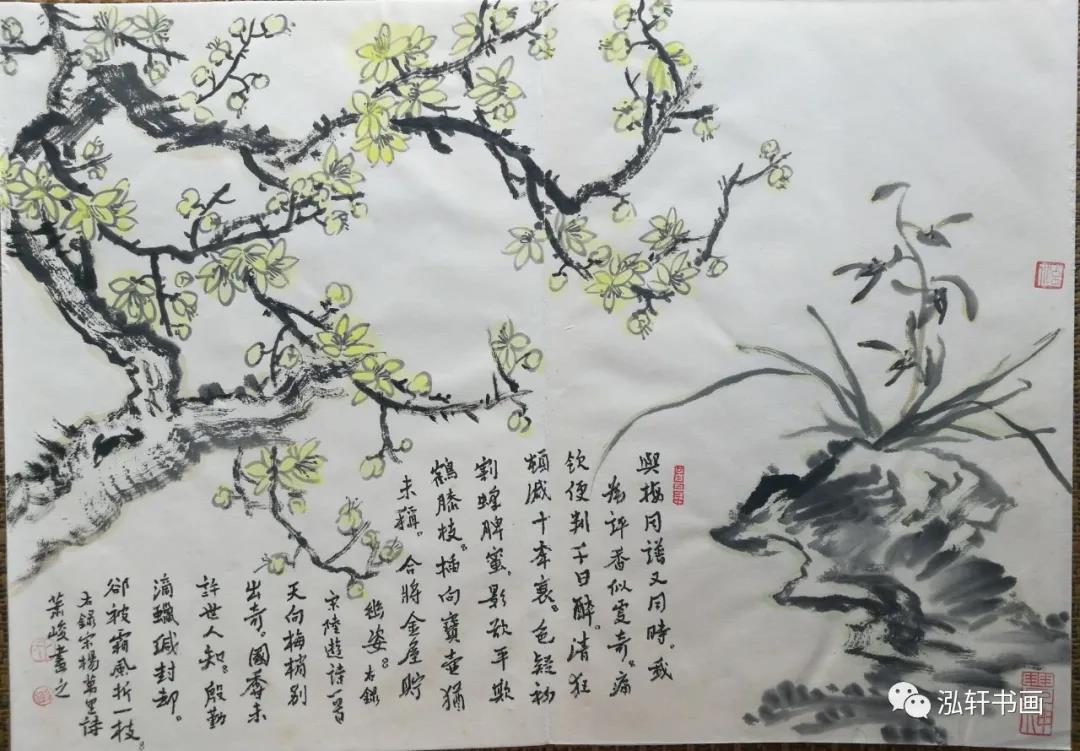 與梅同譜又同時。我
為評香似更奇。痛
飲便判千日醉。清狂
頓減十年衰。色疑初
割蜂脾蜜。影欲平欺
鶴膝枝。插向寶壺猶
未稱。合將金屋貯
幽姿。右錄
宋陸遊詩一首
天向梅梢別
出奇。國香未
許世人知。殷勤
滴蠟緘封却。
卻被霜風折一枝。
右錄宋楊萬里詩
葉峻畫之
泓轩书画